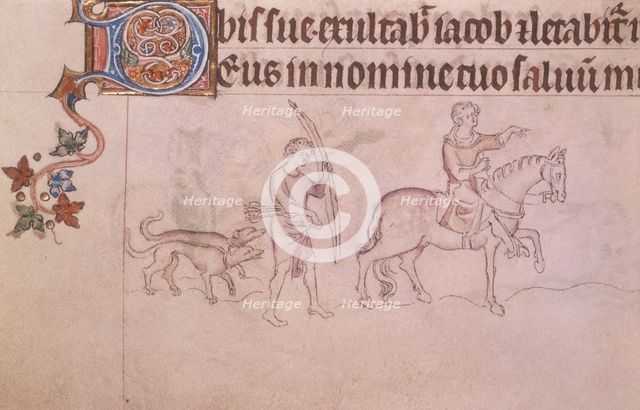 bis sue·exultab̄ iacob ⁊ letabit᷑ i
Deus in nomine tuo saluū m
Heritage Heritage
Heritage Heritage Heritage
©
Heritage Heritage
Heritage